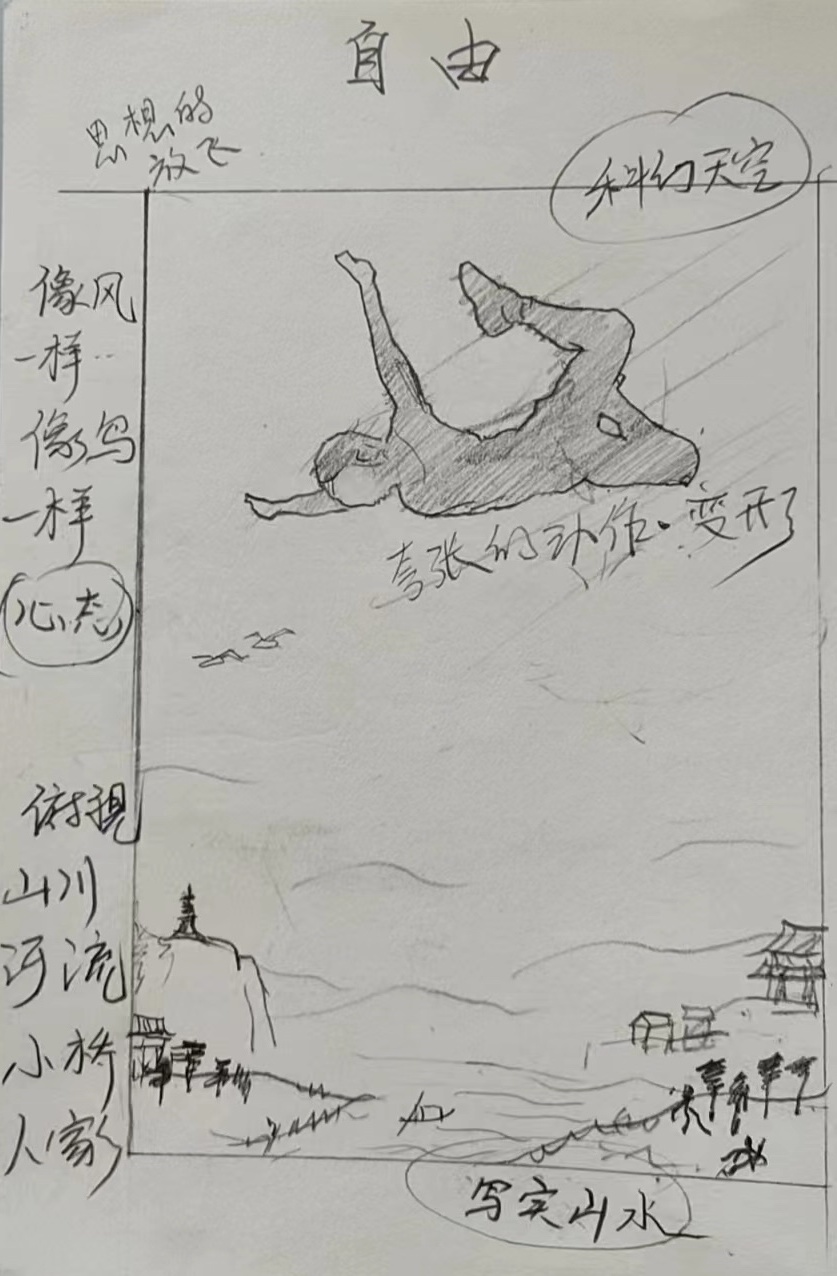 自由
思想的
放飞
科幻天空
像风
一样..
像鸟
一样
心态
夸张的动作.变形
俯视
山川
河流
小桥
人家
写实山水